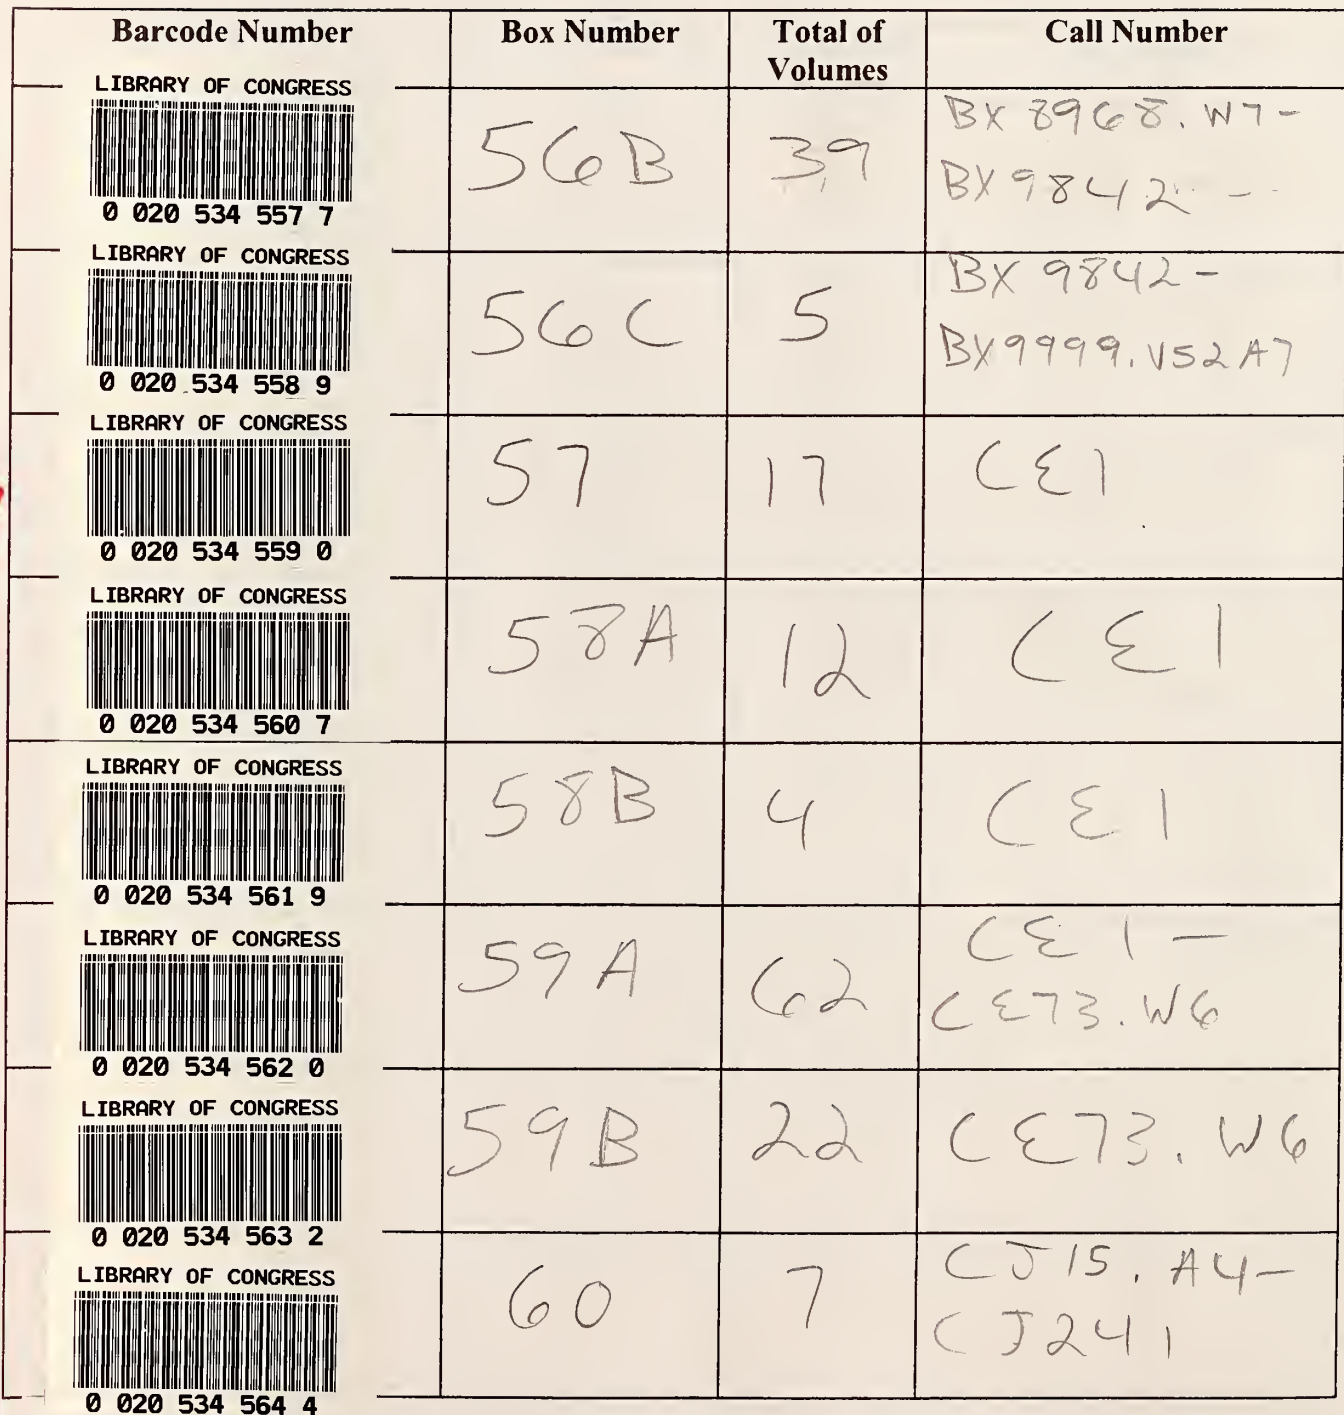 Barcode Number Box Number Total of Volumes Call Number
LIBRARY OF CONGRESS
0 020 534 557 7
56B 39 BX 8968. W7-
BX9842 -
LIBRARY OF CONGRESS
0 020 534 558 9
56C 5 BX 9842-
BX9999. V52 A7
LIBRARY OF CONGRESS
0 020 534 559 0
57 17 CE1
LIBRARY OF CONGRESS
0 020 534 560 7
58A 12 CE 1
LIBRARY OF CONGRESS
0 020 534 561 9
58B 4 CE 1
LIBRARY OF CONGRESS
0 020 534 562 0
59A 62 CE 1 -
CE73. W6
LIBRARY OF CONGRESS
0 020 534 563 2
59B 22 CE73. W6
LIBRARY OF CONGRESS
0 020 534 564 4
60 7 CJ15. A4-
CJ241